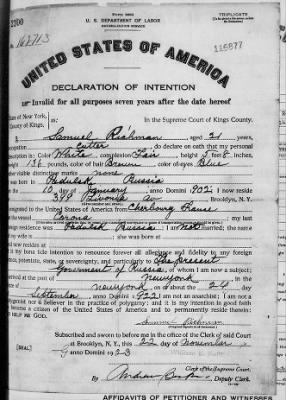 2200
U. S. DEPARTMENT OF LABOR
NATURALIZATION SERVICE
TRIPLICATE
No. 162713
115877
UNITED STATES OF AMERICA
DECLARATION OF INTENTION
Invalid for all purposes seven years after the date hereof
State of New York,
County of Kings,
In the Supreme Court of Kings County.
Samuel Richman aged 21
occupation Cutter do declare on oath that my personal
description is: Color White complexion Fair height 5 feet 8 inches,
136 pounds, color of hair Brown color of eyes Blue
other visible distinctive marks none
Russia
on 10 day of January anno Domini 1902 I now reside
Av Brooklyn, N. Y.
emigrated to the United States of America from Cherbourg France
vessel Corona
last residence was Russia I am not married; the name
she was born at
and now resides at
It is my bona fide intention to renounce forever all allegiance and fidelity to any foreign
potentate, state, or sovereignty, and particularly to The present
Government of Russia of whom I am now a subject;
arrived at the port of New York in the
State of New York on or about the 24 day
September anno Domini 1922 I am not an anarchist; I am not a
polygamist nor a believer in the practice of polygamy; and it is my intention in good faith
to become a citizen of the United States of America and to permanently reside therein:
HELP ME GOD.
Samuel Richman
Subscribed and sworn to before me in the office of the Clerk of said Court
at Brooklyn, N. Y., this 22 day of November
[SEAL]
anno Domini 1923
Clerk of the Supreme Court.
By Deputy Clerk.
AFFIDAVITS OF PETITIONER AND WITNESSES